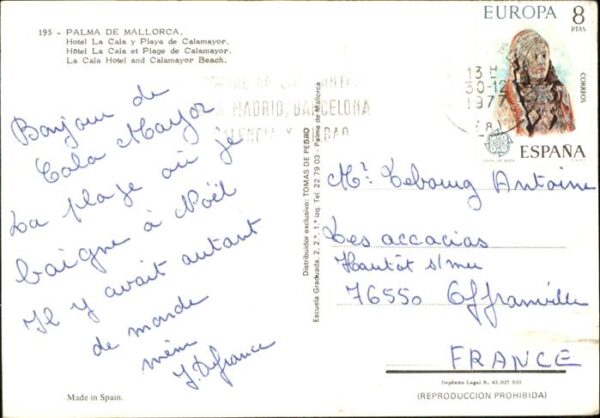 195 - PALMA DE MALLORCA.
Hotel La Cala y Playa de Calamayor.
Hotel La Cala et Plage de Calamayor.
La Cala Hotel and Calamayor Beach.
EUROPA 8
PTAS
CORREOS
ESPAÑA
13 H
30-12
1977
MADRID, BARCELONA
VALENCIA Y BILBAO
Bonjour de
Cala Mayor
La plage où je
baigne à Noël
Il y avait autant
de monde
même
J. Defrance
Distribuidor exclusivo: TOMAS DE PEDRO
Escuela Graduada, 2, 2.º, 1.ª izq. Tel. 22 79 03 - Palma de Mallorca
Mr. Lebourg Antoine
Les accacias
Hautôt s/mer
76550 Offranville
FRANCE
Made in Spain.
Depósito Legal B. 42.027 XIII
(REPRODUCCION PROHIBIDA)